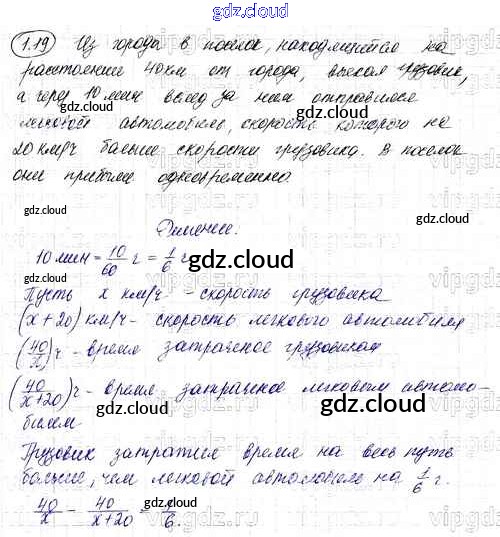 gdz.cloud
1.19 Из города в поселок, находящийся на
расстоянии 40 км от города, выехал грузовик,
а через 10 мин вслед за ним отправился
легковой автомобиль, скорость которого на
20 км/ч больше скорости грузовика. В поселок
они прибыли одновременно
gdz.cloud
Решение:
10 мин = 10/60 ч = 1/6 ч
gdz.cloud
Пусть x км/ч - скорость грузовика
(x+20) км/ч - скорость легкового автомобиля
(40/x) ч - время затраченое грузовиком
(40/x+20) ч - время затраченое легковым автомо-
билем
gdz.cloud
Грузовик затратил время на весь путь
больше, чем легковой автомобиль на 1/6 ч.
40/x - 40/x+20 = 1/6.
gdz.cloud